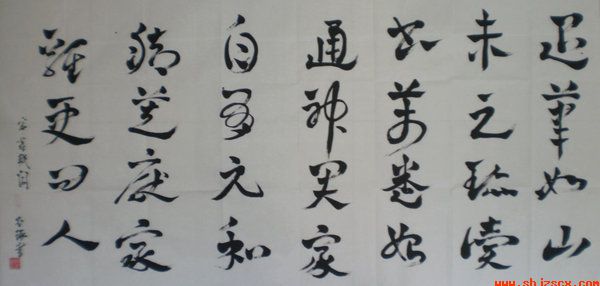 退筆如山
未足珍讀
書萬卷始
通神君家
自有元和
脚莫厭家
雞更問人
www.shjzscx.com